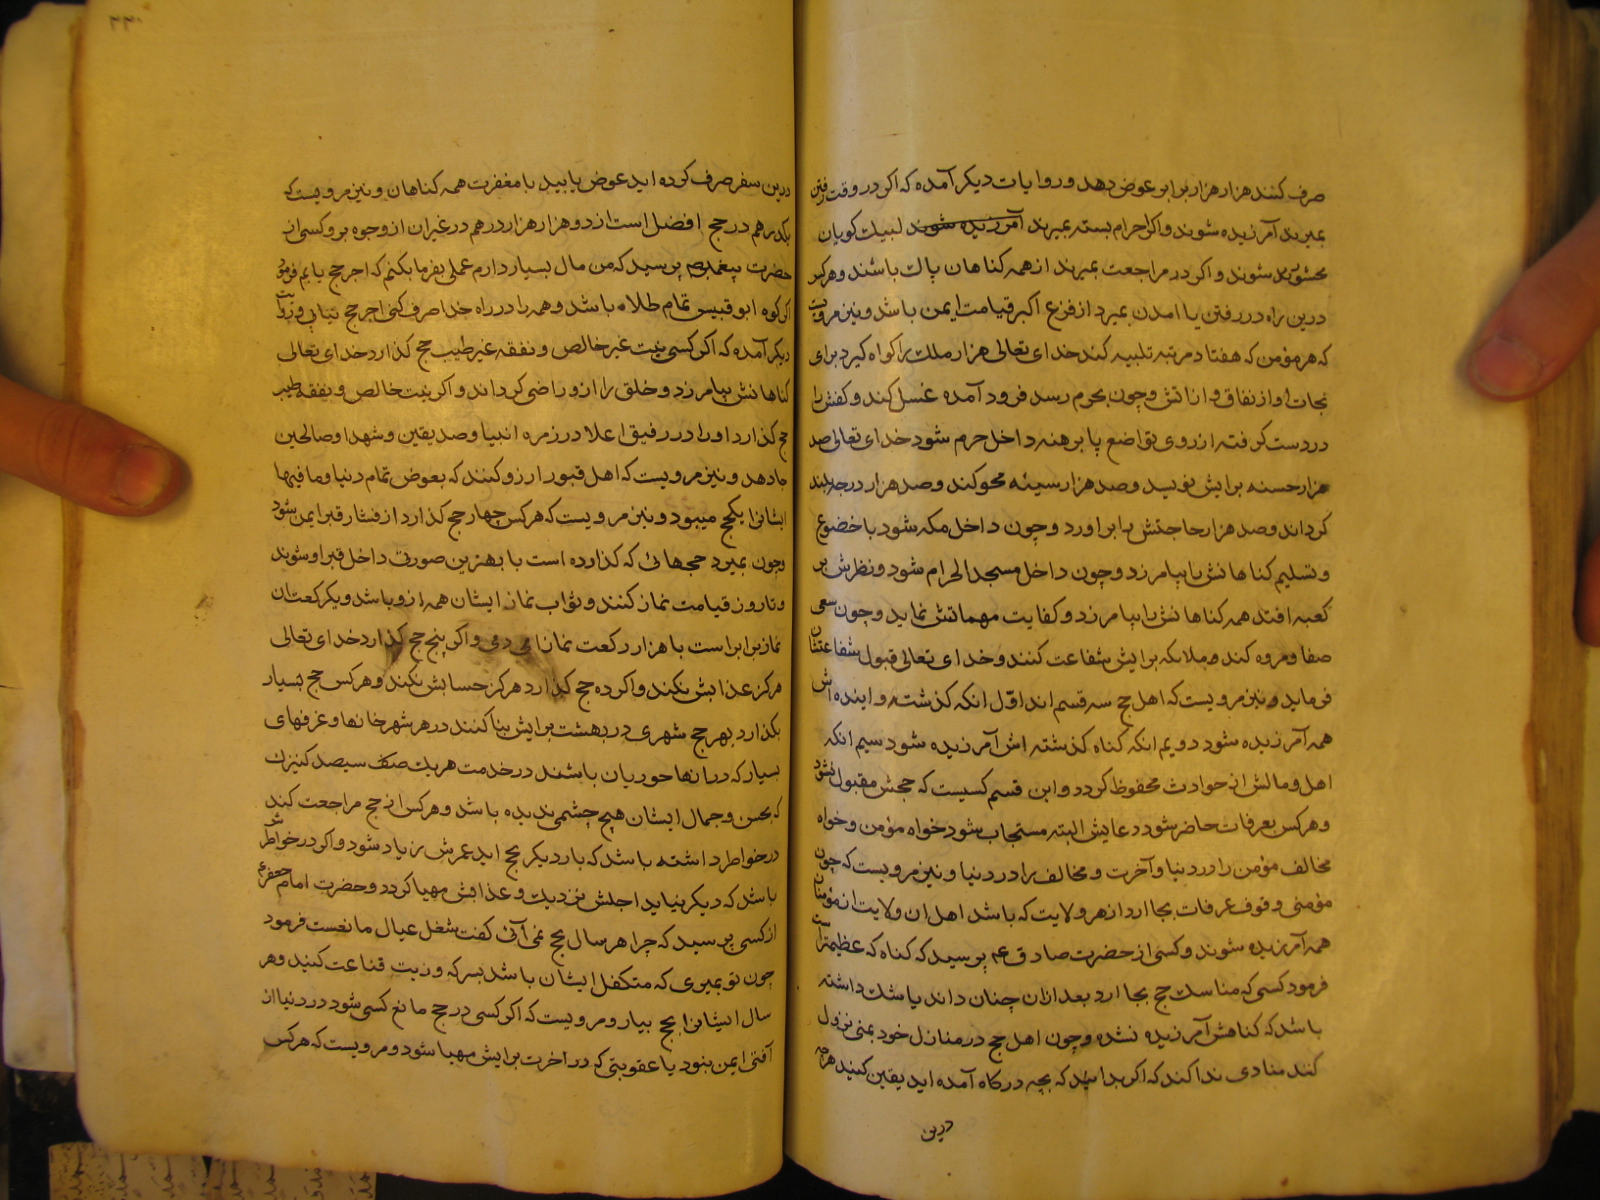 صرف کنند هزار هزار برابر عوض دهد و روایات دیگر آمده که اگر در وقت رفتن
بمیرند آمرزیده شوند و اگر احرام بسته بمیرند آمرزیده شوند لبیک کویان
محشور شوند و اگر در مراجعت بمیرند از همه کناهان پاک باشند و هرکس
درین راه در رفتن یا امدن بمیرد از فزع اکبر قیامت ایمن باشد و نیز مرویست
که هر مؤمن که هفتاد مرتبه تلبیه کند خدای تعالی هزار ملک را کواه کیرد برای
نجات او از نفاق و از اتش و چون بحرم رسد فرود آمده غسل کند و کفش را
در دست کرفته از روی تواضع پا برهنه داخل حرم شود خدای تعالی صد
هزار حسنه برایش نویسد و صد هزار سیئه محو کند و صد هزار درجه بلند
کرداند و صد هزار حاجتش برآورد و چون داخل مکه شود با خضوع
و تسلیم کناهانش بیامرزد و چون داخل مسجد الحرام شود و نظرش بر
کعبه افتد همه کناهانش بیامرزد و کفایت مهماتش نماید و چون سعی
صفا و مروه کند ملائکه برایش شفاعت کنند و خدای تعالی قبول شفاعتشان
فرماید و نیز مرویست که اهل حج سه قسم اند اوّل انکه کذشته و اینده اش
همه آمرزیده شود دویم انکه کناه کذشته اش آمرزیده شود سیم انکه
اهل و مالش از حوادث محفوظ کردد و این قسم کسیست که حجش مقبول نشود
و هرکس بعرفات حاضر شود دعایش البته مستجاب شود خواه مؤمن و خواه
مخالف مؤمن را در دنیا و آخرت و مخالف را در دنیا و نیز مرویست که چون
مؤمنی وقوف عرفات بجا ارد از هر ولایت که باشد اهل ان ولایت از مؤمنان
همه آمرزیده شوند و کسی از حضرت صادق ع پرسید که کناه که عظیمتر است
فرمود کسی که مناسک حج بجا ارد بعد ازان چنان داند یا شک داشته
باشد که کناهش آمرزیده نشده و چون اهل حج در منازل خود بمنی نزول
کنند منادی ندا کند که اکر بدانید که بچه درکاه آمده اید یقین کنید هرچه
درین
درین سفر صرف کرده اید عوض یابید با مغفرت همه کناهان و نیز مرویست که
یکدرهم در حج افضل است از دو هزار هزار درهم در غیر ان از وجوه بر و کسی از
حضرت پیغمبر ص پرسید که من مال بسیار دارم عملی بفرما بکنم که اجر حج یابم فرمود
اکر کوه ابو قبیس تمام طلاء باشد و همه را در راه خدا صرف کنی اجر حج نیابی و روایت
دیکر آمده که اکر کسی بنیت غیر خالص و نفقه غیر طیب حج کذارد خدای تعالی
کناهانش بیامرزد و خلق را ازو راضی کرداند و اکر بنیت خالص و نفقه طیب
حج کذارد او را در رفیق اعلا در زمره انبیا و صدیقین و شهدا و صالحین
جا دهد و نیز مرویست که اهل قبور ارزو کنند که بعوض تمام دنیا و ما فیها
ایشانرا یکحج میبود و نیز مرویست که هرکس چهار حج کذارد از فشار قبر ایمن شود
و چون بمیرد حجهائی که کذارده است با بهترین صورتی داخل قبر او شوند
و تا روز قیامت نماز کنند و ثواب نماز ایشان همه ازو باشد و یکرکعت ان
نماز برابر است با هزار رکعت نماز ادمی و اکر پنج حج کذارد خدای تعالی
هرکز عذابش نکند و اکر ده حج کذارد هرکز حسابش نکند و هرکس حج بسیار
بکذارد بهر حج شهری در بهشت برایش بنا کنند در هر شهر خانها و غرفهای
بسیار که در انها حوریان باشند در خدمت هریک سیصد کنیزک
که بحسن و جمال ایشان هیچ چشمی ندیده باشد و هرکس از حج مراجعت کند
در خواطر داشته باشد که بار دیکر بحج اید عمرش زیاد شود و اکر در خواطرش
باشد که دیکر نیاید اجلش نزدیک و عذابش مهیا کردد و حضرت امام جعفر ع
از کسی پرسید که چرا هر سال بحج نمی آئی کفت شغل عیال مانعست فرمود
چون تو بمیری که متکفل ایشان باشد بسرکه و زیت قناعت کنید و هر
سال ایشانرا بحج بیار و مرویست که اکر کسی در حج مانع کسی شود در دنیا از
آفتی ایمن نبود یا عقوبتی که در اخرت برایش مهیا شود و مرویست که هرکس